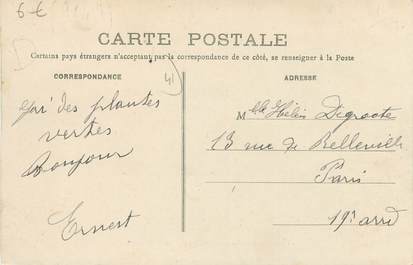 6€
CARTE POSTALE
Certains pays étrangers n'acceptant pas la correspondance de ce côté, se renseigner à la Poste
CORRESPONDANCE
41
ADRESSE
des plantes
vertes
Bonjour
Ernest
Mlle Hélène Degroote
13 rue de Belleville
Paris
19e arrd